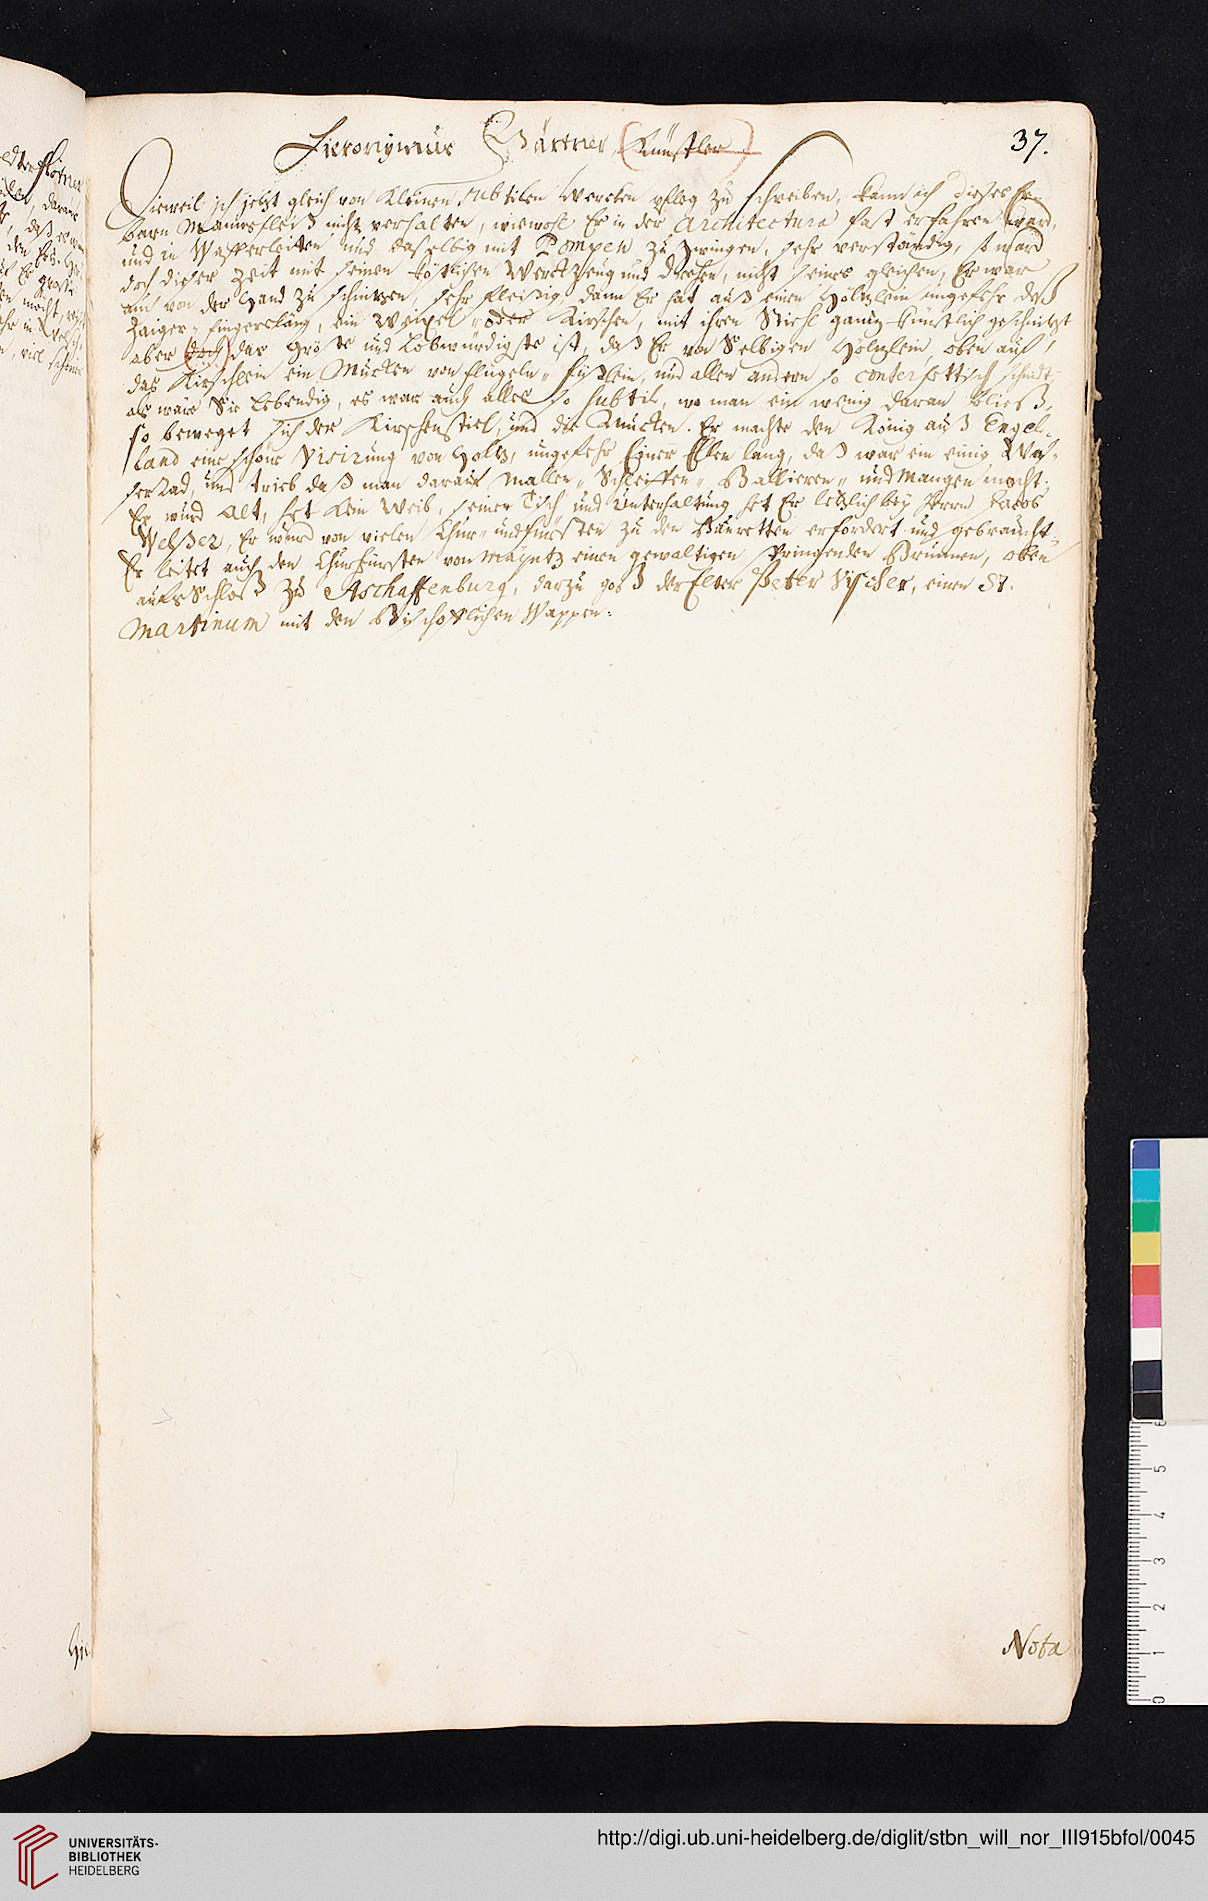 37.
Hieronymus Gärtner Künstler
Dieweil ich jetzt gleich von kleinen subtilen Wercken pfleg zu schreiben, kann ich dieses Er-
barn Mannes Fleiß nicht verhalten, wiewohl Er in der Architectura fast erfahren ward,
und in Wasserleiten und daselbig mit Pompen zu zwingen, sehr verständig, ward
doch dieser Zeit mit seinen köstlichen Werckzeug und drehen, nicht seines gleichen, Er war
auch von der Hand zu schnitzen, sehr fleißig, dann Er hat auß einen Höltzlein ungefehr deß
Zaiger„ Fingerslang, ein Weixel„ oder Kirschen, mit ihren Stiehl gantz künstlich geschnitzt
aber doch das Gröste und Lobwürdigste ist, daß Er von Selbigen Höltzlein, oben auf
das Kirschlein ein Mucken von Flügeln„ Füßlein, und allen andern so conterfettisch schnidt,
als wäre Sie Lebendig, es war auch alles so subtil, wo man ein wenig daran bließ,
so beweget sich der Kirschenstiel, und die Mucken. Er machte den König auß Engel-
land eine schöne Visirung von Holtz, ungefehr Einer Ellen lang, daß war ein einig Was-
ser Rad, und trieb daß man darauf Mallen„ Schleiffen„ Ballieren„ und Mangen mocht.
Er wurd Alt, het kein Weib, seinen Tisch und Unterhaltung het Er letzlich bey Herrn Jacob
Welßer, Er wurd von vielen Chur„ und Fürsten zu den Bauretten erfordert und gebraucht,
Er leitet auch den Churfürsten von Mayntz einen gewaltigen springenden Brunnen, oben
aufs Schloß zu Aschaffenburg, darzu goß der Elter Peter Vischer, einen St.
Martinum mit den Bischofflichen Wappen:
Nota
UNIVERSITÄTS-
BIBLIOTHEK
HEIDELBERG
http://digi.ub.uni-heidelberg.de/diglit/stbn_will_nor_III915bfol/0045
0 1 2 3 4 5 6